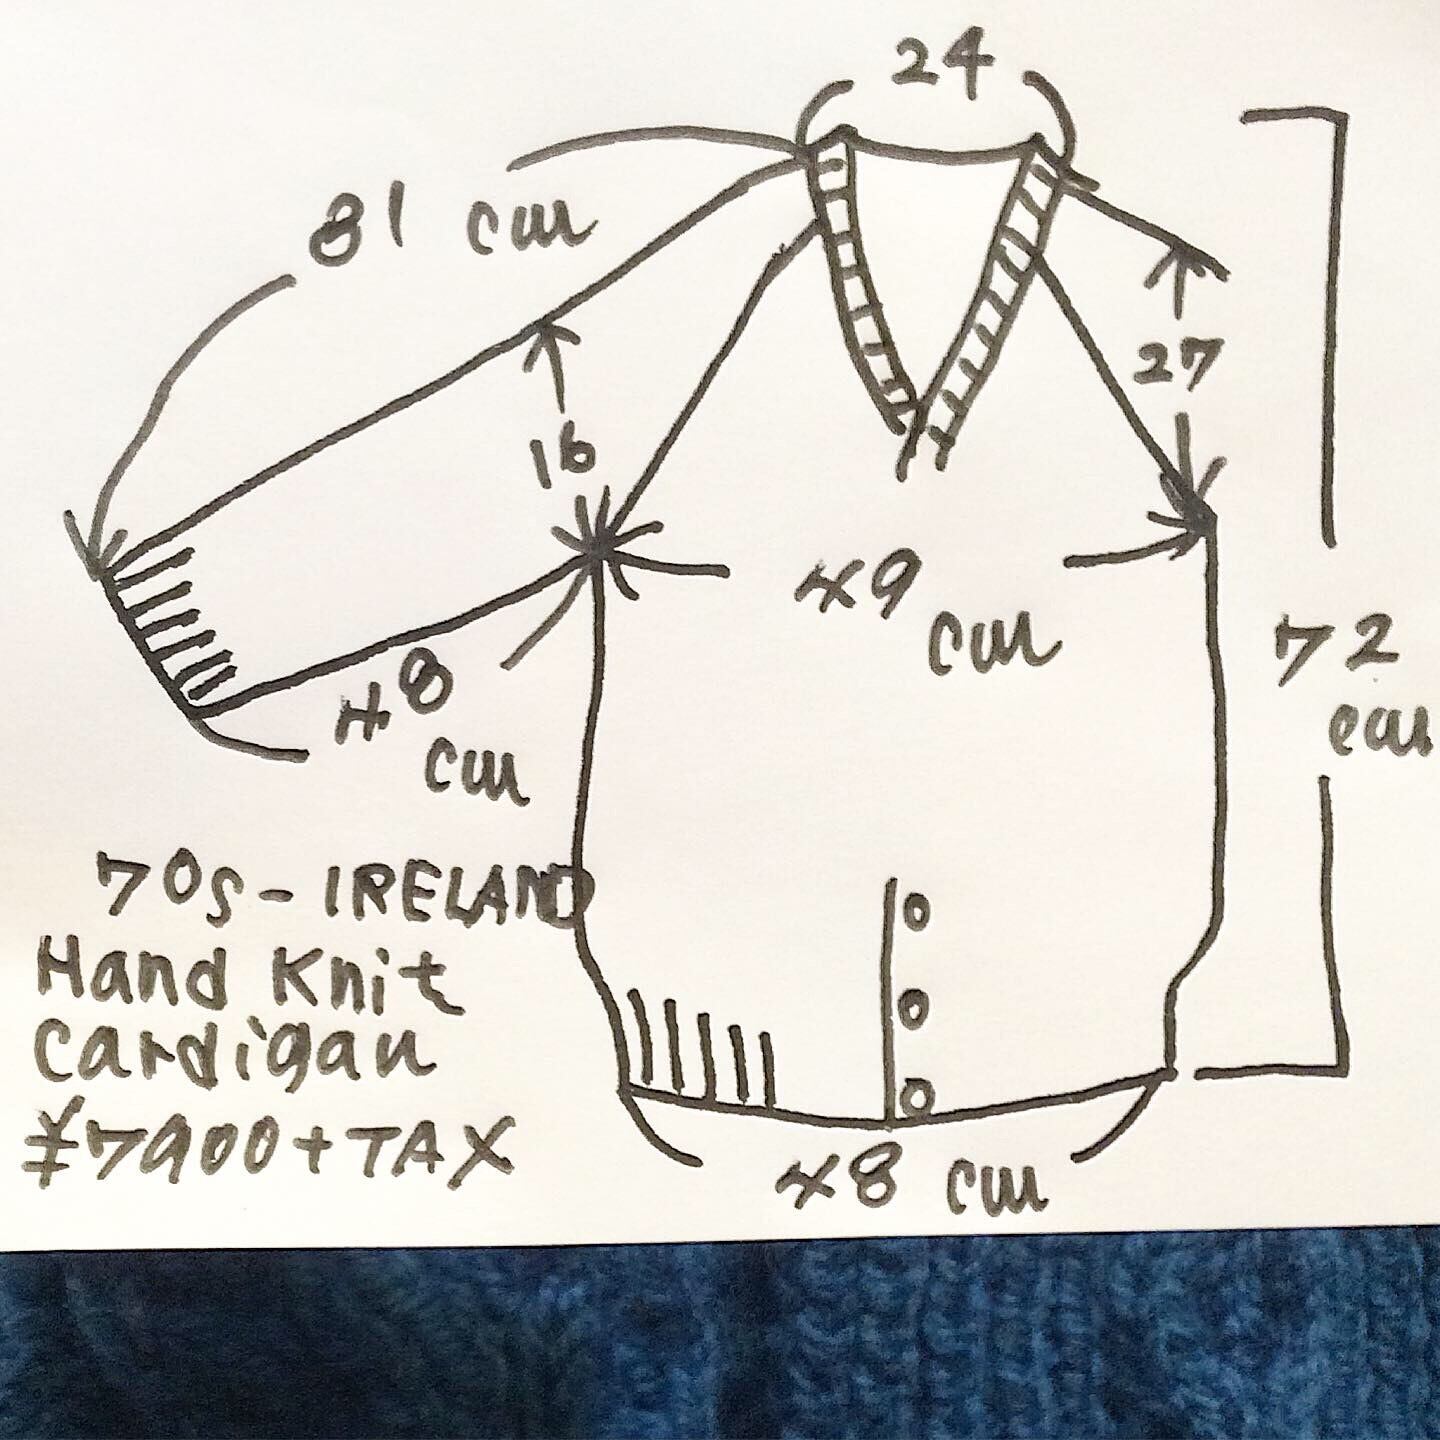 24
81 cm
27
16
49 cm
72 cm
48 cm
70s-IRELAND
Hand Knit
Cardigan
¥7900+TAX
48 cm